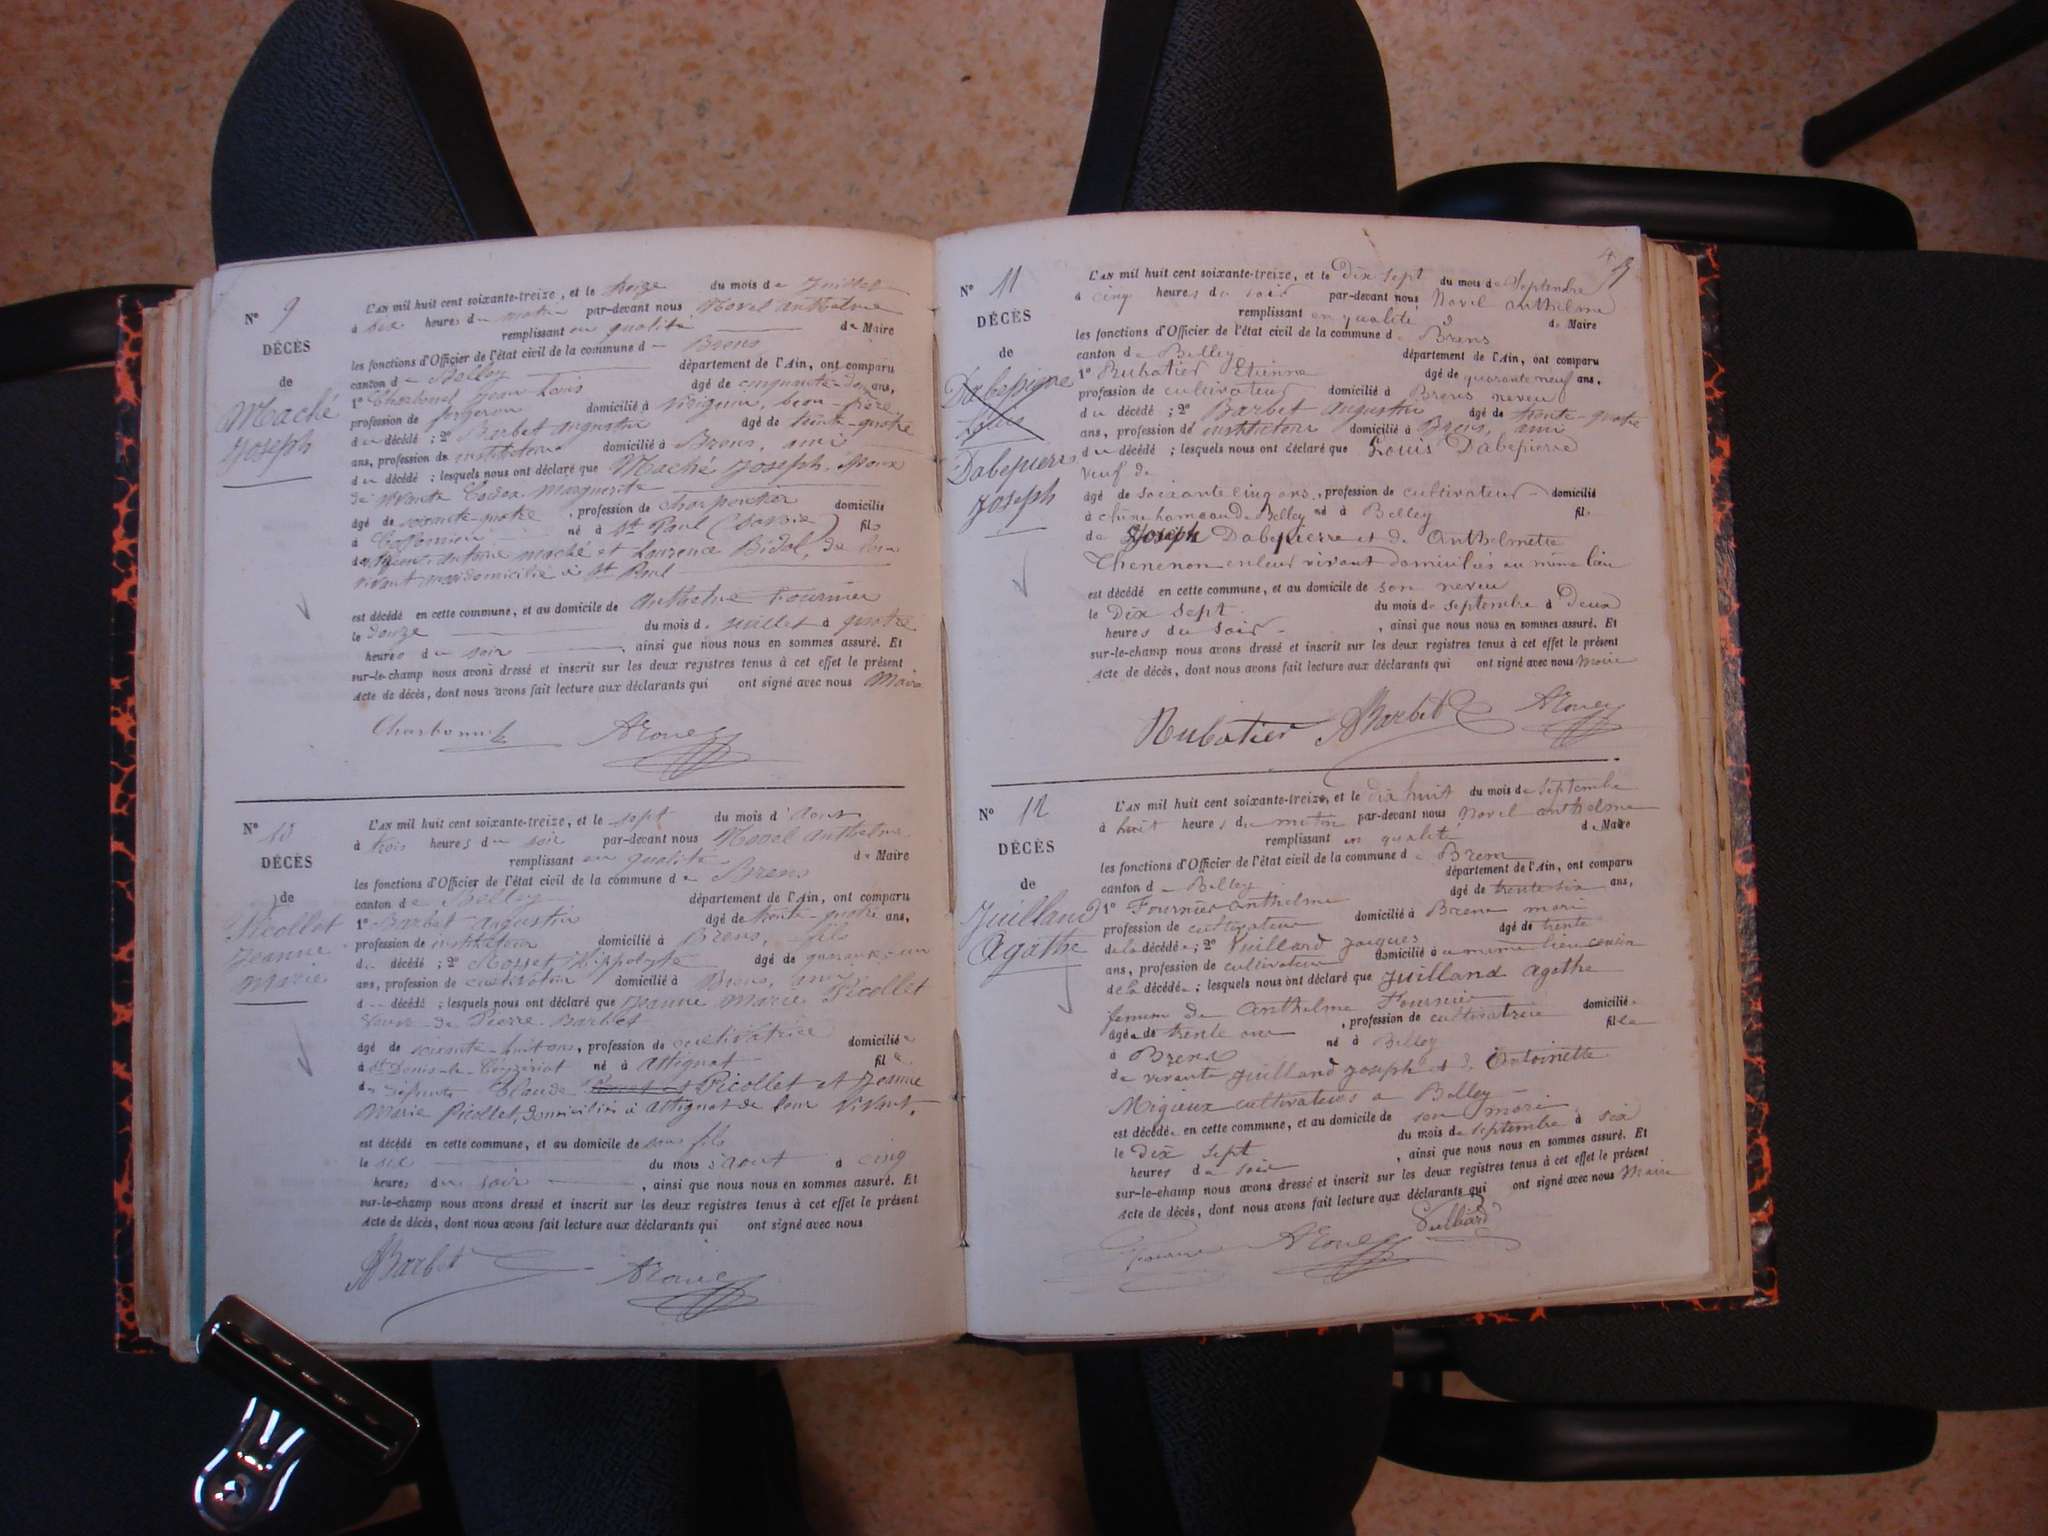 N° 9
DÉCÈS
de
Maché
Joseph
L'AN mil huit cent soixante-treize, et le treize du mois de Juillet
à six heures du matin par-devant nous Novel Anthelme
remplissant en qualité de Maire
les fonctions d'Officier de l'état civil de la commune d Brens
canton de Belley département de l'Ain, ont comparu
1° Charbonel Jean Louis âgé de cinquante-deux ans,
profession de forgeron domicilié à Virignin, beau-frère
du décédé ; 2° Barbet Augustin âgé de trente-quatre
ans, profession de instituteur domicilié à Brens, ami
du décédé ; lesquels nous ont déclaré que Maché Joseph, époux
de vivante Marguerite
âgé de soixante-quatre , profession de charpentier domicilié
à né à St Paul (Savoie) fils
de Antoine Maché et Laurence Bidal, de leur
vivant domicilié à St Paul
est décédé en cette commune, et au domicile de Anthelme Fournier
le douze du mois de Juillet à quatre
heures du soir , ainsi que nous nous en sommes assuré. Et
sur-le-champ nous avons dressé et inscrit sur les deux registres tenus à cet effet le présent
Acte de décès, dont nous avons fait lecture aux déclarants qui ont signé avec nous Maire
N° 10
DÉCÈS
de
Picollet
Jeanne
Marie
L'AN mil huit cent soixante-treize, et le sept du mois d'Aout
à trois heures du soir par-devant nous Novel Anthelme
remplissant en qualité de Maire
les fonctions d'Officier de l'état civil de la commune de Brens
canton de Belley département de l'Ain, ont comparu
1° Barbet Augustin âgé de trente-quatre ans,
profession de instituteur domicilié à Brens, fils
du décédé ; 2° Rosset Hippolyte âgé de quarante-un
ans, profession de cultivateur domicilié à Brens, ami
d décédé ; lesquels nous ont déclaré que Jeanne Marie Picollet
veuve de Pierre Barbet
âgé de soixante-huit ans, profession de cultivatrice domiciliée
à St Denis-le-Ceyzériat né à Attignat fille
de défunts Claude Picollet et Jeanne
Marie Picollet, domiciliés à Attignat de leur vivant.
est décédé en cette commune, et au domicile de son fils
le six du mois d'aout à cinq
heures du soir , ainsi que nous nous en sommes assuré. Et
sur-le-champ nous avons dressé et inscrit sur les deux registres tenus à cet effet le présent
Acte de décès, dont nous avons fait lecture aux déclarants qui ont signé avec nous
ABarbet
N° 11
DÉCÈS
de
Dabepierre
Joseph
L'AN mil huit cent soixante-treize, et le dix sept du mois de Septembre
à cinq heures du soir par-devant nous Novel Anthelme
remplissant en qualité de Maire
les fonctions d'Officier de l'état civil de la commune de Brens
canton de Belley département de l'Ain, ont comparu
1° Rubatier Etienne âgé de quarante neuf ans,
profession de cultivateur domicilié à Brens neveu
du décédé ; 2° Barbet Augustin âgé de trente-quatre
ans, profession de instituteur domicilié à Brens, ami
du décédé ; lesquels nous ont déclaré que Louis Dabepierre
veuf de
âgé de soixante cinq ans, profession de cultivateur domicilié
à hameau de Belley né à Belley fil
de Joseph Dabepierre et de Anthelmette
en leur vivant domiciliés au même lieu
est décédé en cette commune, et au domicile de son neveu
le Dix sept du mois de septembre à Deux
heures du soir , ainsi que nous nous en sommes assuré. Et
sur-le-champ nous avons dressé et inscrit sur les deux registres tenus à cet effet le présent
Acte de décès, dont nous avons fait lecture aux déclarants qui ont signé avec nous Maire
Rubatier ABarbet
N° 12
DÉCÈS
de
Juilland
Agathe
L'AN mil huit cent soixante-treize, et le dix huit du mois de Septembre
à huit heures du matin par-devant nous Novel Anthelme
remplissant en qualité de Maire
les fonctions d'Officier de l'état civil de la commune d Brens
canton de Belley département de l'Ain, ont comparu
1° Fournier Anthelme âgé de trente six ans,
profession de cultivateur domicilié à Brens mari
de la décédée ; 2° Vuillard Jacques âgé de trente
ans, profession de cultivateur domicilié à même lieu cousin
de la décédée ; lesquels nous ont déclaré que Juilland Agathe
femme de Anthelme Fournier
âgée de trente ans , profession de cultivatrice domiciliée
à Brens né à Belley fille
de vivants Juilland Joseph et d Antoinette
Migieux cultivateurs à Belley
est décédée en cette commune, et au domicile de son mari
le Dix sept du mois de septembre à six
heures du soir , ainsi que nous nous en sommes assuré. Et
sur-le-champ nous avons dressé et inscrit sur les deux registres tenus à cet effet le présent
Acte de décès, dont nous avons fait lecture aux déclarants qui ont signé avec nous Maire